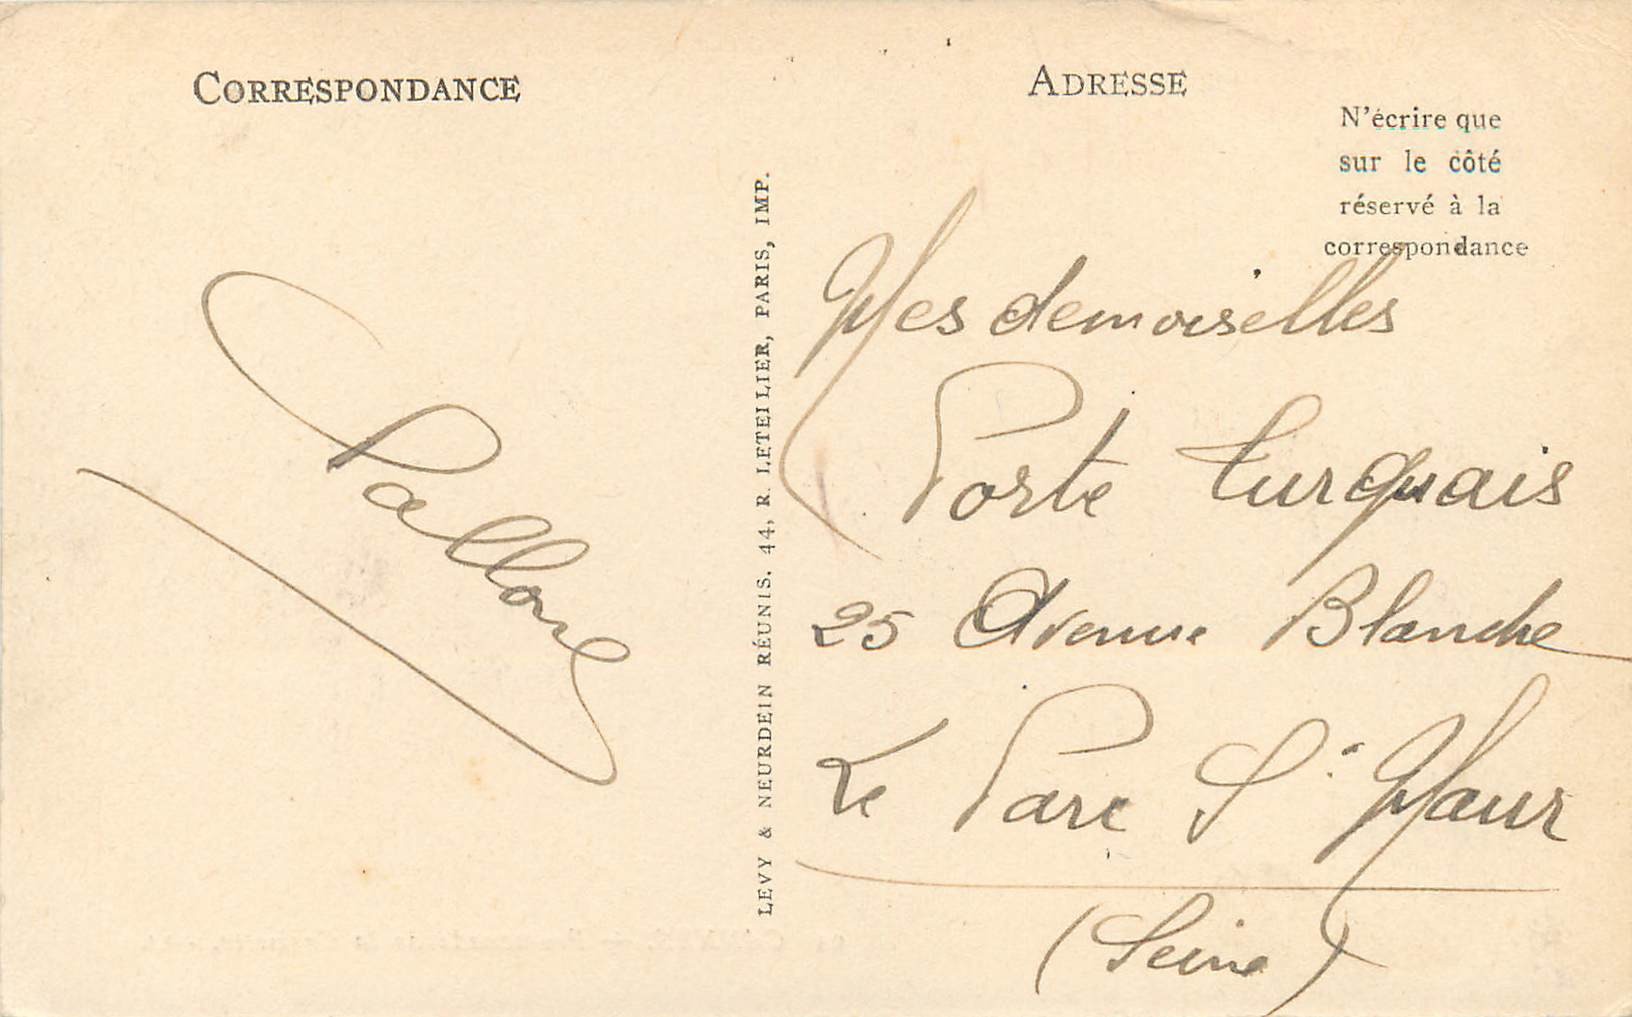 CORRESPONDANCE
ADRESSE
N'écrire que
sur le côté
réservé à la
correspondance
LEVY & NEURDEIN RÉUNIS. 44, R. LETELLIER, PARIS, IMP.
Mesdemoiselles
Porte Turquais
25 Avenue Blanche
Le Parc St Maur
(Seine)